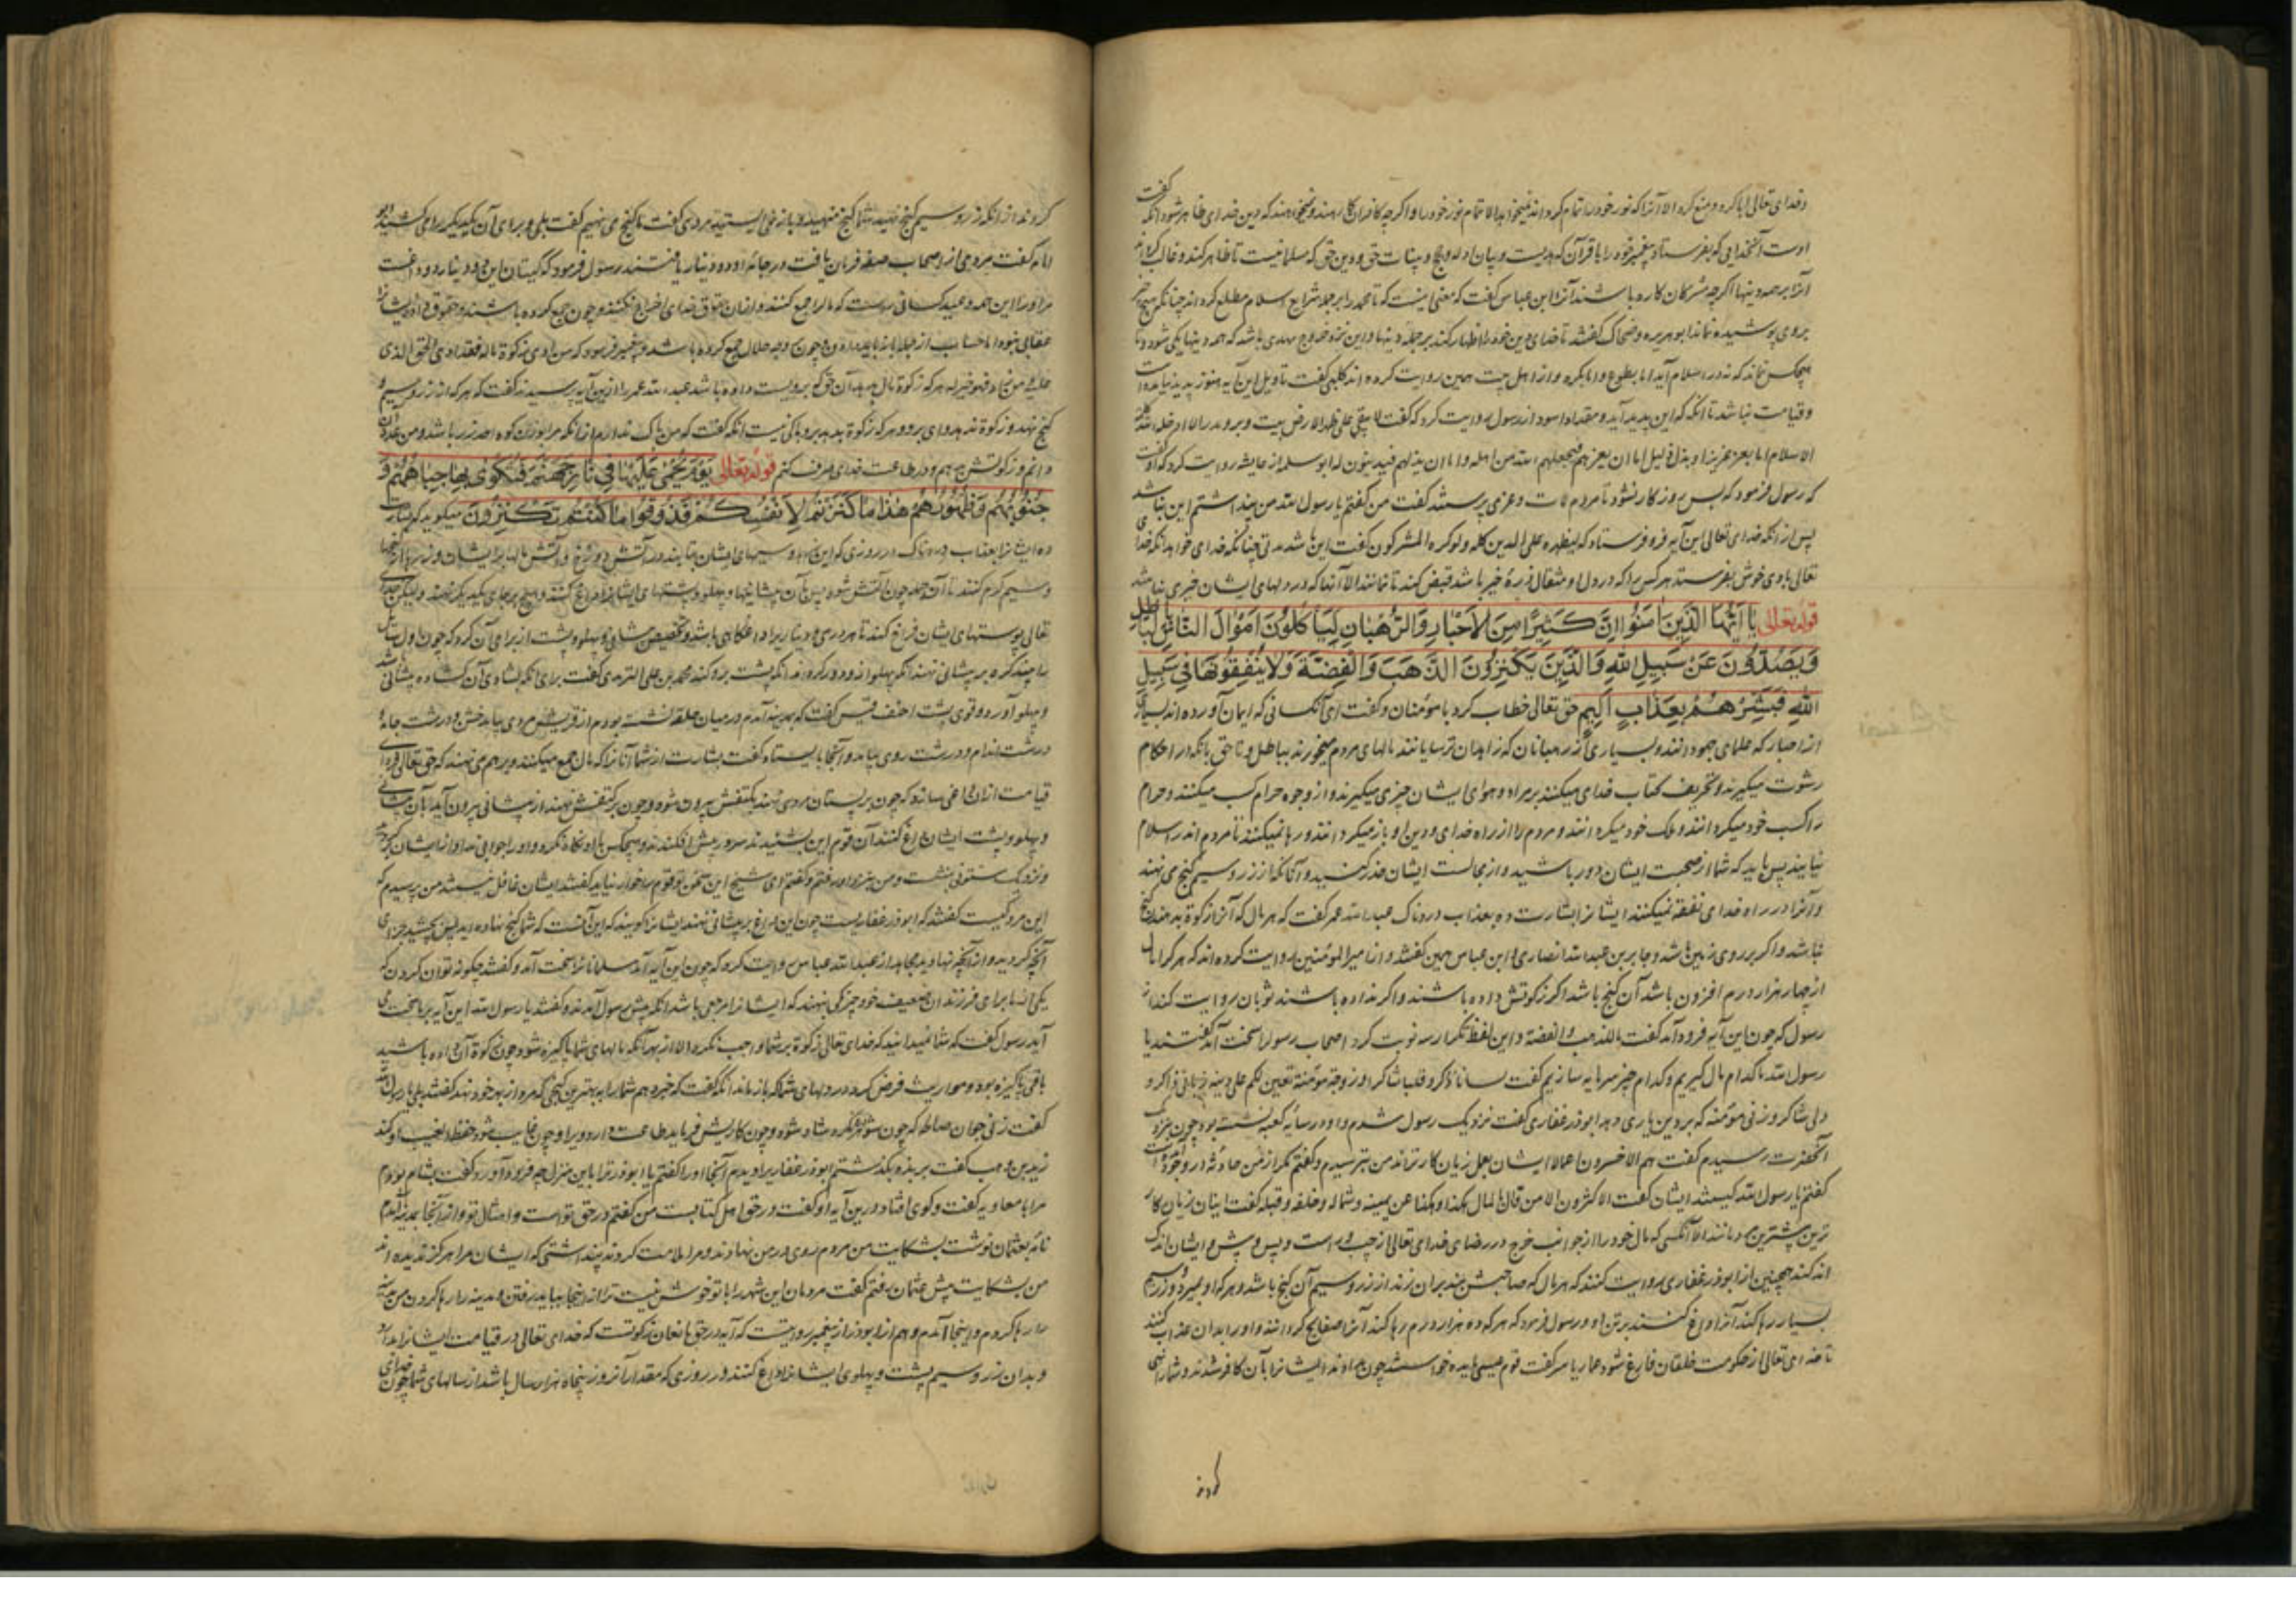 وخدای تعالی ابا کرد و منع کرد الا آنرا که نور خود را تمام کرداند نمیخواهد الا تمام نور خود را و اکرچه کافران کاره‌اند و نمیخواهند که دین خدای ظاهر شود آنکه کفت
اوست آنخدایی که بفرستاد پیغمبر خود را با قرآن که هدیست و بیان ادله و حجج و بینات حق و دین حق که مسلمانیست تا ظاهر کند و غالب
آنرا بر همه دینها اکرچه مشرکان کاره باشند آنرا ابن عباس کفت که معنی اینست که تا محمد را بر جمله شرایع اسلام مطلع کرداند چنانکه هیچ چیز
بروی پوشیده نماند ابو هریره و ضحاک کفتند تا خدای دین خود را اظهار کند بر جمله دینها و این نزد خروج مهدی باشد که همه دینها یکی شود و تا
هیچکس نماند که نه در اسلام آید اما بطوع و اما بکره و از اهل بیت همین روایت کرده‌اند کلبی کفت تاویل این آیه هنوز پدید نیامده است
و قیامت نباشد تا آنکه که این پدید آید و مقداد اسود از رسول روایت کرد که کفت لا یبقی علی ظهر الارض بیت وبر ومدر الا ادخله الله
الاسلام اما بعز عزیز او بذل ذلیل اما ان یعزهم فیجعلهم الله من اهله و اما ان یذلهم فیدینون له ابو سلمه از عایشه روایت کرد که او کفت
که رسول فرمود که بس روزکار نشود تا مردم لات و عزی پرستند کفت من کفتم یا رسول الله من پنداشتم این نباشد
پس از آنکه خدای تعالی این آیه فرو فرستاد که لیظهره علی الدین کله ولو کره المشرکون کفت این باشد مدتی چنانکه خدای خواهد آنکه خدای
تعالی بادی خوش بفرستد هرکس را که در دل او مثقال ذره خیر باشد قبض کند تا نمانند الا آنها که در دلهای ایشان خیری نباشد
قوله تعالی یا ایها الذین آمنوا ان کثیرا من الاحبار والرهبان لیاکلون اموال الناس بالباطل
ویصدون عن سبیل الله والذین یکنزون الذهب والفضة ولا ینفقونها فی سبیل
الله فبشرهم بعذاب الیم حق تعالی خطاب کرد با مؤمنان و کفت ای آنکسانی که ایمان آورده‌اند بسیاری
از احبار که علمای جهودانند و بسیاری از رهبانان که زاهدان ترسایانند مالهای مردم میخورند بباطل و ناحق بانکه در احکام
رشوت میکیرند و تحریف کتاب خدای میکنند بر مراد و هوای ایشان چیزی میکیرند و از وجوه حرام کسب میکنند و حرام
را کسب خود میکردانند و ملک خود میکردانند و مردم را از راه خدای و دین او باز میکردانند و رها نمیکنند تا مردم اندر اسلام
نیایند پس باید که شما از صحبت ایشان دور باشید و از مجالست ایشان حذر کنید و آنانکه از زر و سیم کنج می نهند
و آنرا در راه خدای نفقه نمیکنند ایشانرا بشارت ده بعذاب دردناک عبدالله عمر کفت که هر مال که آنرا زکوة بدهند کنج
نباشد و اکر بر روی زمین باشد و جابر بن عبدالله انصاری و ابن عباس همین کفتند و از امیرالمؤمنین روایت کرده‌اند که هرکرا مال
از چهار هزار درم افزون باشد آن کنج باشد اکر زکوتش داده باشند و اکر نداده باشند ثوبان روایت کند از
رسول که چون این آیه فرود آمد کفت تبا للذهب والفضة و این لفظ تکرار سه نوبت کرد اصحاب رسول را سخت آمد کفتند یا
رسول الله ما کدام مال کیریم و کدام چیز سرمایه سازیم کفت لسانا ذاکرا و قلبا شاکرا و زوجة مؤمنة تعین لکم علی دینه زبانی ذاکر و
دلی شاکر و زنی مؤمنه که بر دین یاری دهد ابوذر غفاری کفت نزدیک رسول شدم و او در سایه کعبه نشسته بود چون نزدیک
آنحضرت رسیدم کفت هم الاخسرون اعمالا ایشان بعمل زیان کارترند من بترسیدم و کفتم مکر از من حادثه در وجود آمده است
کفتم یا رسول الله کیستند ایشان کفت الاکثرون الا من قال بالمال هکذا و هکذا عن یمینه و شماله و خلفه و قبله کفت اینان زیان کار
ترین بیشترین مردمانند الا آنکسی که مال خود را از جوانب خرج در رضای خدای تعالی از چپ و راست و پس و پیش و ایشان اندک
اند کنند همچنین از ابوذر غفاری روایت کنند که هر مال که صاحبش بند بر آن زند از زر و سیم آن کنج باشد و هرکه او بمیرد و زر و سیم
بسیار رها کند آنرا داغ کنند بر تن او و رسول فرمود که هرکه ده هزار درم رها کند آنرا صفایح کردانند و او را بدان عذاب کنند
تا خدای تعالی از حکومت خلقان فارغ شود عمار یاسر کفت قوم عیسی مایده خواستند چون بداوند ایشانرا بآن کافر شدند و شما را نهی
کردند
کردند از آنکه زر و سیم کنج نهید شما کنج منهید و باز نمی ایستید مردی کفت ما کنج می نهیم کفت بلی و برای آن یکدیکر را می کشید ابو
امامه کفت مردی از اصحاب صفه فرمان یافت در جامه او دو دینار یافتند رسول فرمود که کیتان این دو دینار دو داغست
مر او را این همه وعید کسانی راست که مال را جمع کنند و از آن حقوق خدای اخراج نکنند و چون جمع کرده باشند و حقوق داده ایشانرا
عقابی نبود اما حساب از حلال باز باید دادن و چون وجه حلال جمع کرده باشند و پیغمبر فرمود که من ادی زکوة ماله فقد ادی الحق الذی
علیه و من زاد فهو خیر له هرکه زکوة مال بدهد آن حق که برویست داده باشد عبدالله عمر را از این آیه پرسیدند کفت که هرکه از زر و سیم
کنج نهد و زکوة ندهد وای برو و هرکه زکوة بدهد برو باکی نیست آنکه کفت که من باک ندارم از آنکه مرا بوزن کوه احد زر باشد و من عددش
دانم و زکوتش بدهم و در طاعت خدای صرف کنم قوله تعالی یوم یحمی علیها فی نار جهنم فتکوی بها جباههم و
جنوبهم وظهورهم هذا ما کنزتم لانفسکم فذوقوا ما کنتم تکنزون میکوید که بشارت
ده ایشانرا بعذاب دردناک در روزی که این زر و سیمهای ایشان بتابند در آتش دوزخ و آتش بالهای ایشان و زرها از کنجها
و سیم کرم کنند تا آن جمله چون آتش شود پس بآن پیشانیها و پهلو و پشتهای ایشانرا داغ کنند و هیچ بر جای یکدیکر ننهند و لیکن خدای
تعالی پوستهای ایشان فراخ کند تا هر درمی و دیناریرا داغکاهی باشد و تخصیص پیشانی و پهلو و پشت از برای آن کرد که چون اول سایل
را بیند کره بر پیشانی نهند آنکه پهلو ازو دور کرداند آنکه پشت برو کند محمد بن علی الترمذی کفت برای آنکه بشادی آن کشاده پیشانی باشد
و پهلو آورد و قوی پشت احنف قیس کفت که بمدینه آمدم در میان حلقه نشسته بودم از قریش مردی بیامد خشن و درشت جامه و
درشت اندام و درشت روی بیامد و آنجا بایستاد کفت بشارت از شما آنانرا که مال جمع میکنند و بر هم می نهند که حق تعالی فردای
قیامت از آن داغی سازد که چون بر پستان مردی نهند بکتفش بیرون شود و چون بر کتفش نهند از پیشانی بیرون آید بآن پیشانی
و پهلو و پشت ایشان داغ کنند آن قوم این بشنیدند سر در پیش افکندند و هیچکس با او نکاه نکرد و او را جوابی نداد او از ایشان برکردید
و نزدیک ستونی بنشست و من نزد او رفتم و کفتم ای شیخ این سخن تو قوم را خوار نیاید کفتند ایشان غافل نیستند من پرسیدم که
این مرد کیست کفتند که ابوذر غفاریست چون این داغ بر پیشانی نهند ایشانرا کویند که این آنست که شما کنج نهاده اید پس بچشید جزای
آنچه کردید و از آنچه نهادید مجاهد از عبدالله عباس روایت کرد که چون این آیه آمد مسلمانانرا سخت آمد و کفتند چکونه توان کردن که
یکی از ما برای فرزندان ضعیف خود چیزکی ننهند که ایشانرا مرجعی باشد آنکه پیش رسول آمدند و کفتند یا رسول الله این آیه بر ما سخت می
آید رسول کفت که شما نمیدانید که خدای تعالی زکوة بر شما واجب نکرد الا از بهر آنکه مالهای شما پاکیزه شود چون زکوة آن داده باشید
باقی پاکیزه بود و مواریث فرض کرد در مالهای شما که باز ماند آنکه کفت که خبر دهم شما را به بهترین کنجی که مرد از بهر خود نهد کفتند بلی یا رسول الله
کفت زنی جوان صالحه که چون شوهر درو نکرد شاد شود و چون کاریش فرماید طاعت دارد ویرا و چون غایب شود حفظ غیب او کند
زید بن وهب کفت بربذه بکذشتم ابوذر غفاریرا دیدم آنجا او را کفتم یا ابوذر ترا باین منزل چه فرود آورد کفت بشام بودم
مرا با معاویه کفت و کوی افتاد در این آیه او کفت در حق اهل کتابست من کفتم در حق تو است و امثال تو و از آنجا بمدینه آمدم
نامه بعثمان نوشت بشکایت من مردم روی در من نهادند و مرا ملامت کردند پنداشتی که ایشان مرا هرکز ندیده اند
من بشکایت پیش عثمان رفتم کفت مردمان این شهر را با تو خوش نیست ترا از اینجا بباید رفتن و مدینه را رها کردن من مدینه
را رها کردم و اینجا آمدم و هم از ابوذر از پیغمبر روایتست که آیه در حق مانعان زکوتست که خدای تعالی در قیامت ایشانرا بدارد
و بدان زر و سیم پشت و پهلوی ایشانرا داغ کنند در روزی که مقدار آنروز پنجاه هزار سال باشد از سالهای شما چون خدای